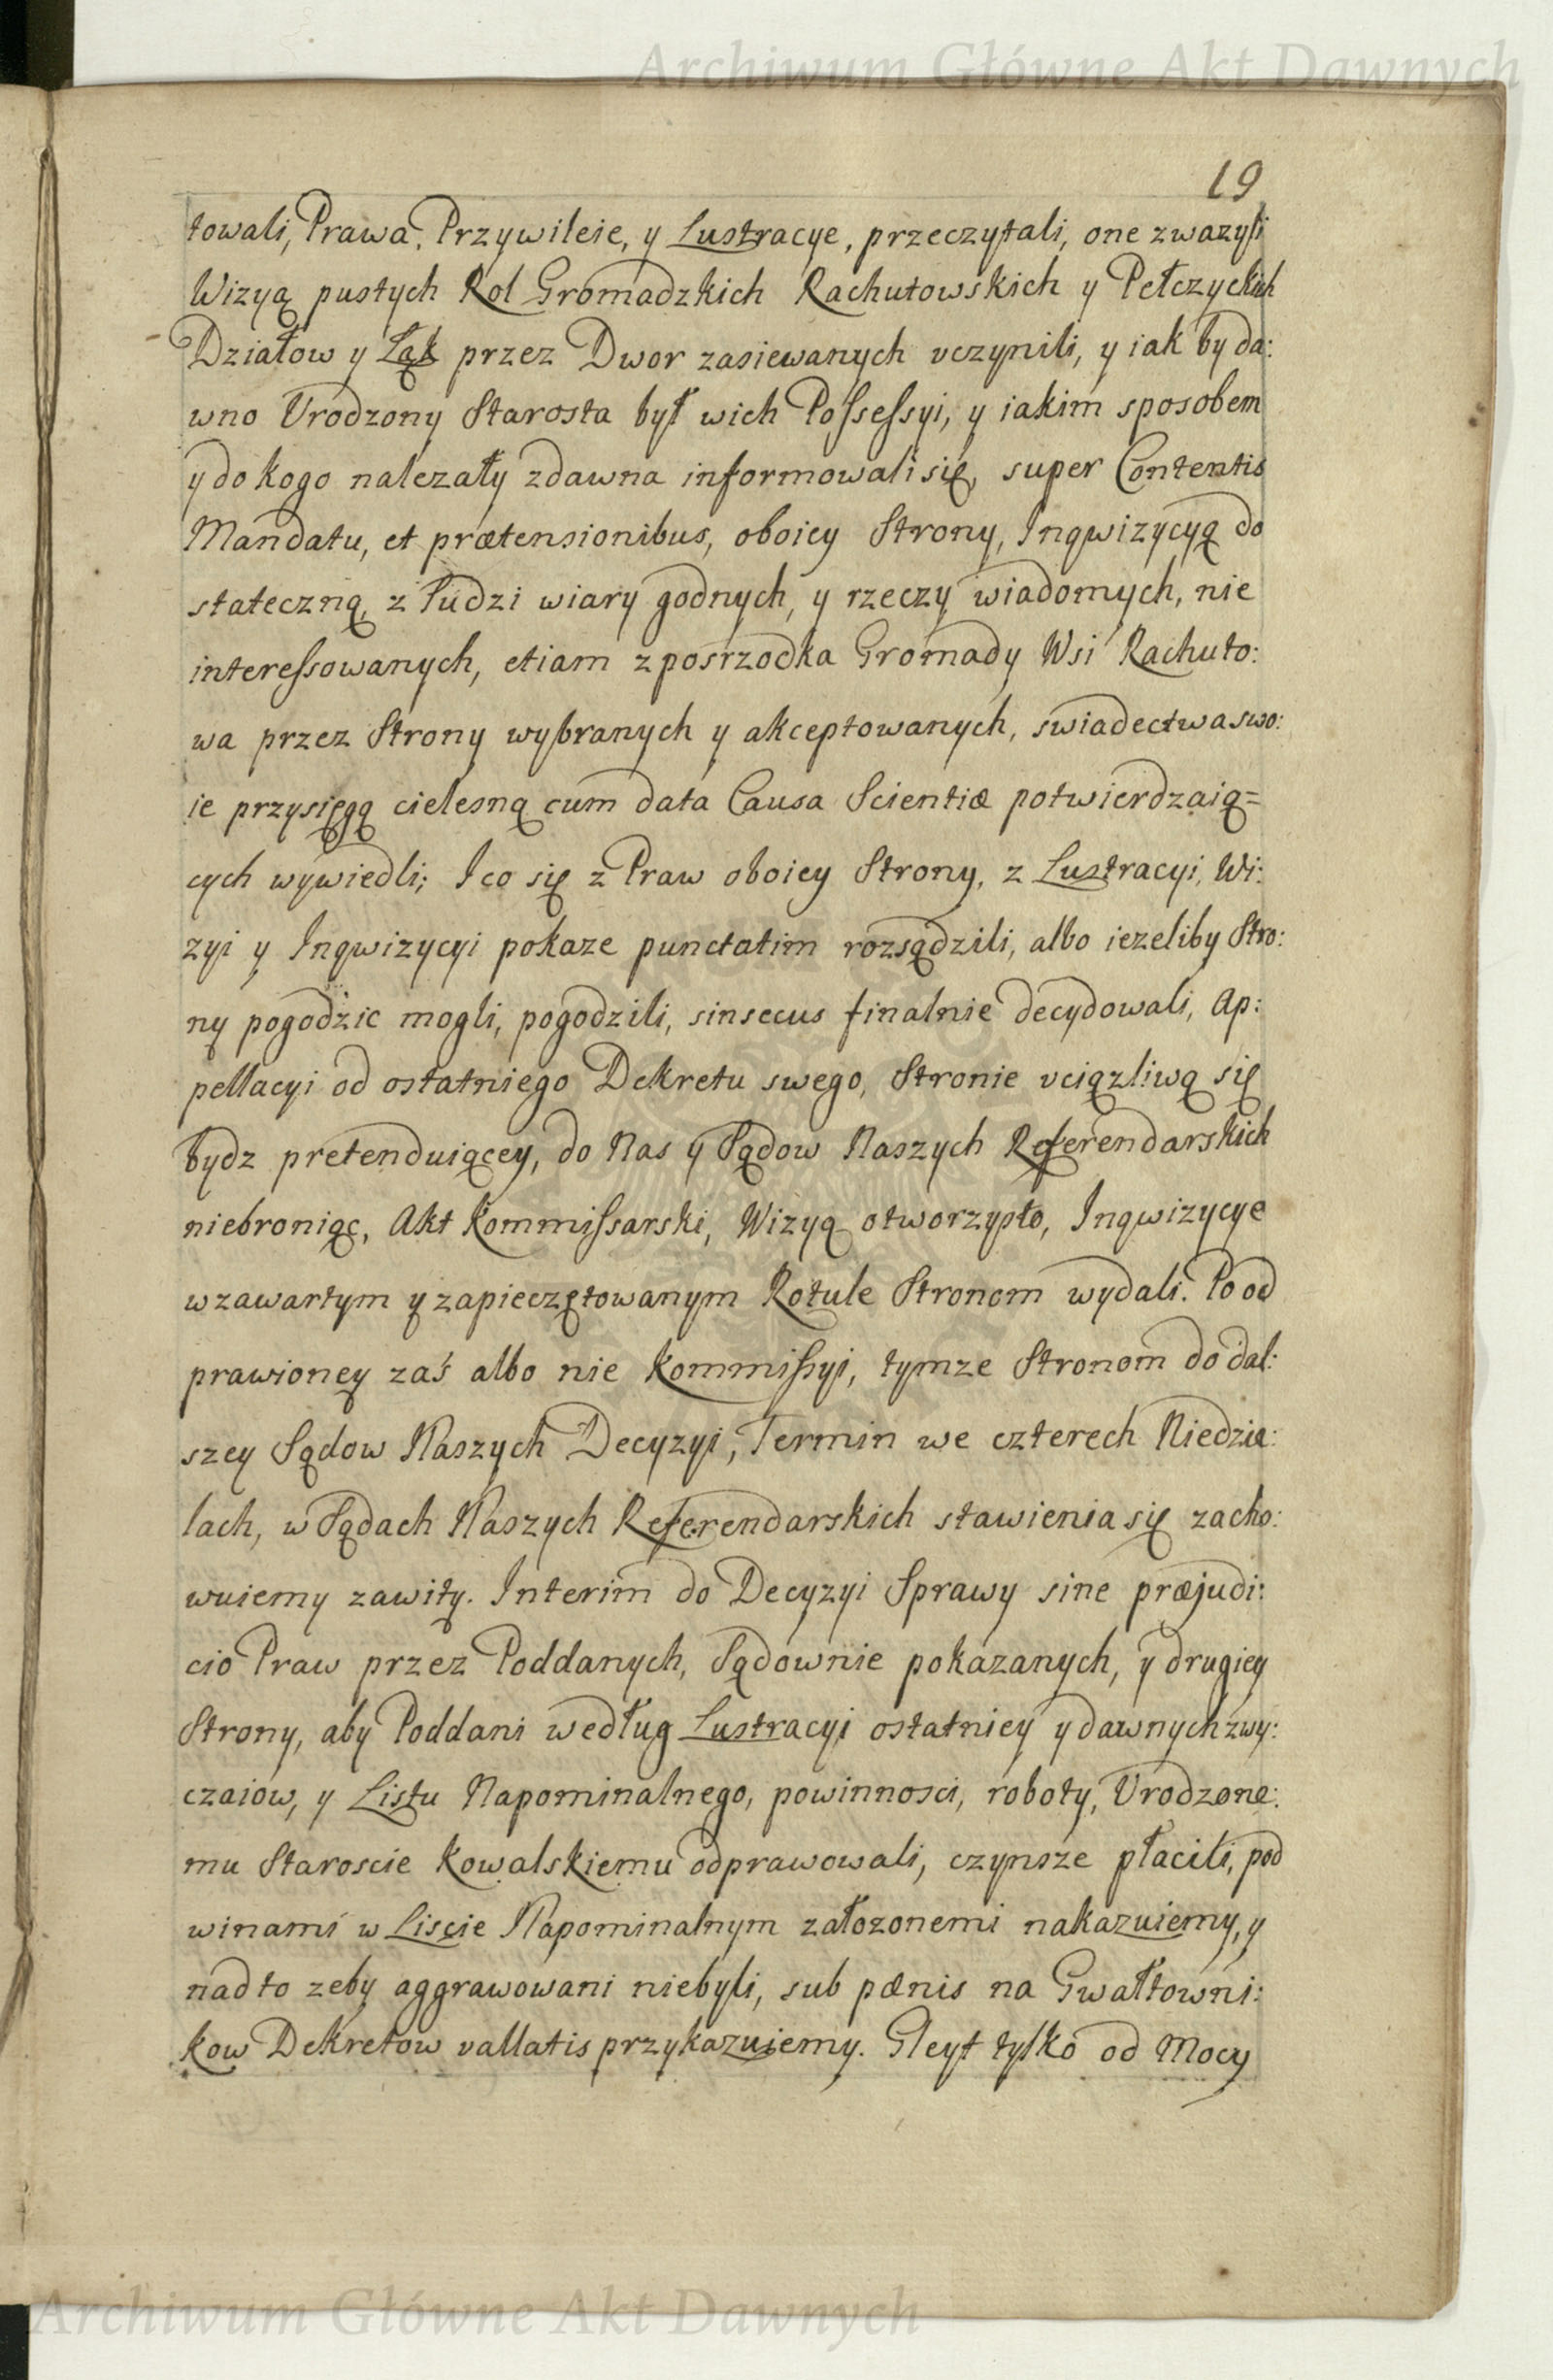 Archiwum Główne Akt Dawnych
19
towali, Prawa, Przywileie, y Lustracye, przeczytali, one zwazyli
Wizyą pustych Rol Gromadzkich Rachutowskich y Pełczyckich
Działow y Łąk przez Dwor zasiewanych uczynili, y iak by da:
wno Urodzony Starosta był wich Possessyi, y iakim sposobem
y do kogo nalezały zdawna informowali się, super Contentis
Mandatu, et prætensionibus, oboiey Strony, Inqwizycyą do
stateczną, z ludzi wiary godnych, y rzeczy wiadomych, nie
interessowanych, etiam z posrzodka Gromady Wsi Rachuto:
wa przez Strony wybranych y akceptowanych, swiadectwa swo:
ie przysięgą cielesną cum data Causa Scientiæ potwierdzaią=
cych wywiedli; I co się z Praw oboiey Strony, z Lustracyi, Wi:
zyi y Inqwizycyi pokaze punctatim rozsądzili, albo iezeliby Stro:
ny pogodzic mogli, pogodzili, sinsecus finalnie decydowali, Ap:
pellacyi od ostatniego Dekretu swego, Stronie uciązliwą się
bydz pretenduiącey, do Nas y Sądow Naszych Referendarskich
niebroniąc, Akt Kommissarski, Wizyą otworzysto, Inqwizycye
w zawartym y zapieczętowanym Rotule Stronom wydali. Po od
prawioney zaś albo nie Kommissyi, tymze Stronom do dal:
szey Sądow Naszych Decyzyi, Termin we czterech Niedzie:
lach, w Sądach Naszych Referendarskich stawienia się zacho:
wuiemy zawity. Interim do Decyzyi Sprawy sine præjudi:
cio Praw przez Poddanych, Sądownie pokazanych, y drugiey
Strony, aby Poddani według Lustracyi ostatniey y dawnych zwy:
czaiow, y Listu Napominalnego, powinnosci, roboty, Urodzone:
mu Staroscie Kowalskiemu odprawowali, czynsze płacili, pod
winami w Liscie Napominalnym załozonemi nakazuiemy, y
nad to zeby aggrawowani niebyli, sub pœnis na Gwałtowni:
kow Dekretow vallatis przykazuiemy. Gleyt tylko od Mocy
Archiwum Główne Akt Dawnych